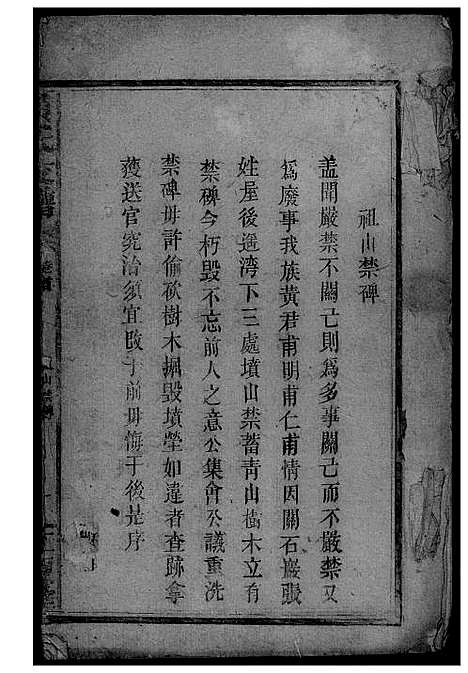 祖山禁碑
盖聞嚴禁不關己則爲多事關己而不嚴禁又
爲廢事我族黄君甫明甫仁甫情因關石巖張
姓屋後邊湾下三處墳山禁蓄青山樹木立有
禁碑今朽毀不忘前人之意公集會公議重洗
禁碑毋許偷砍樹木掘毀墳塋如違者查跡拿
獲送官究治須宜戢于前毋悔于後是序